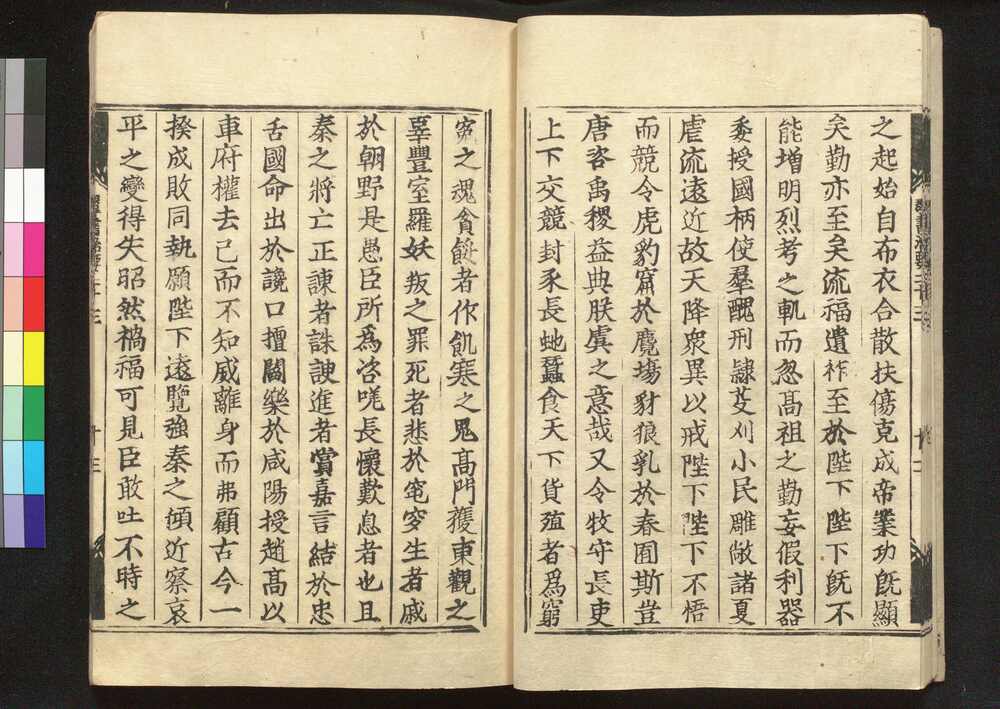 之起始自布衣合散扶傷克成帝業功旣顯
矣勤亦至矣流福遺祚至於陛下陛下旣不
能增明烈考之軌而忽髙祖之勤妄假利器
委授國柄使羣醜刑隷芟刈小民雕敝諸夏
虐流遠近故天降衆異以戒陛下陛下不悟
而競令虎豹窟於麑塲豺狼乳於春囿斯豈
唐咨禹稷益典朕虞之意哉又令牧守長吏
上下交競封豕長虵蠶食天下貨殖者爲窮
寃之魂貪餧者作飢寒之鬼髙門獲東觀之
辜豐室羅妖叛之罪死者悲於窀穸生者戚
於朝野是愚臣所爲咨嗟長懷歎息者也且
秦之將亡正諫者誅諛進者賞嘉言結於忠
舌國命出於讒口擅閻樂於咸陽授趙髙以
車府權去己而不知威離身而弗顧古今一
揆成敗同執願陛下遠覽強秦之傾近察哀
平之變得失昭然禍福可見臣敢吐不時之
十三